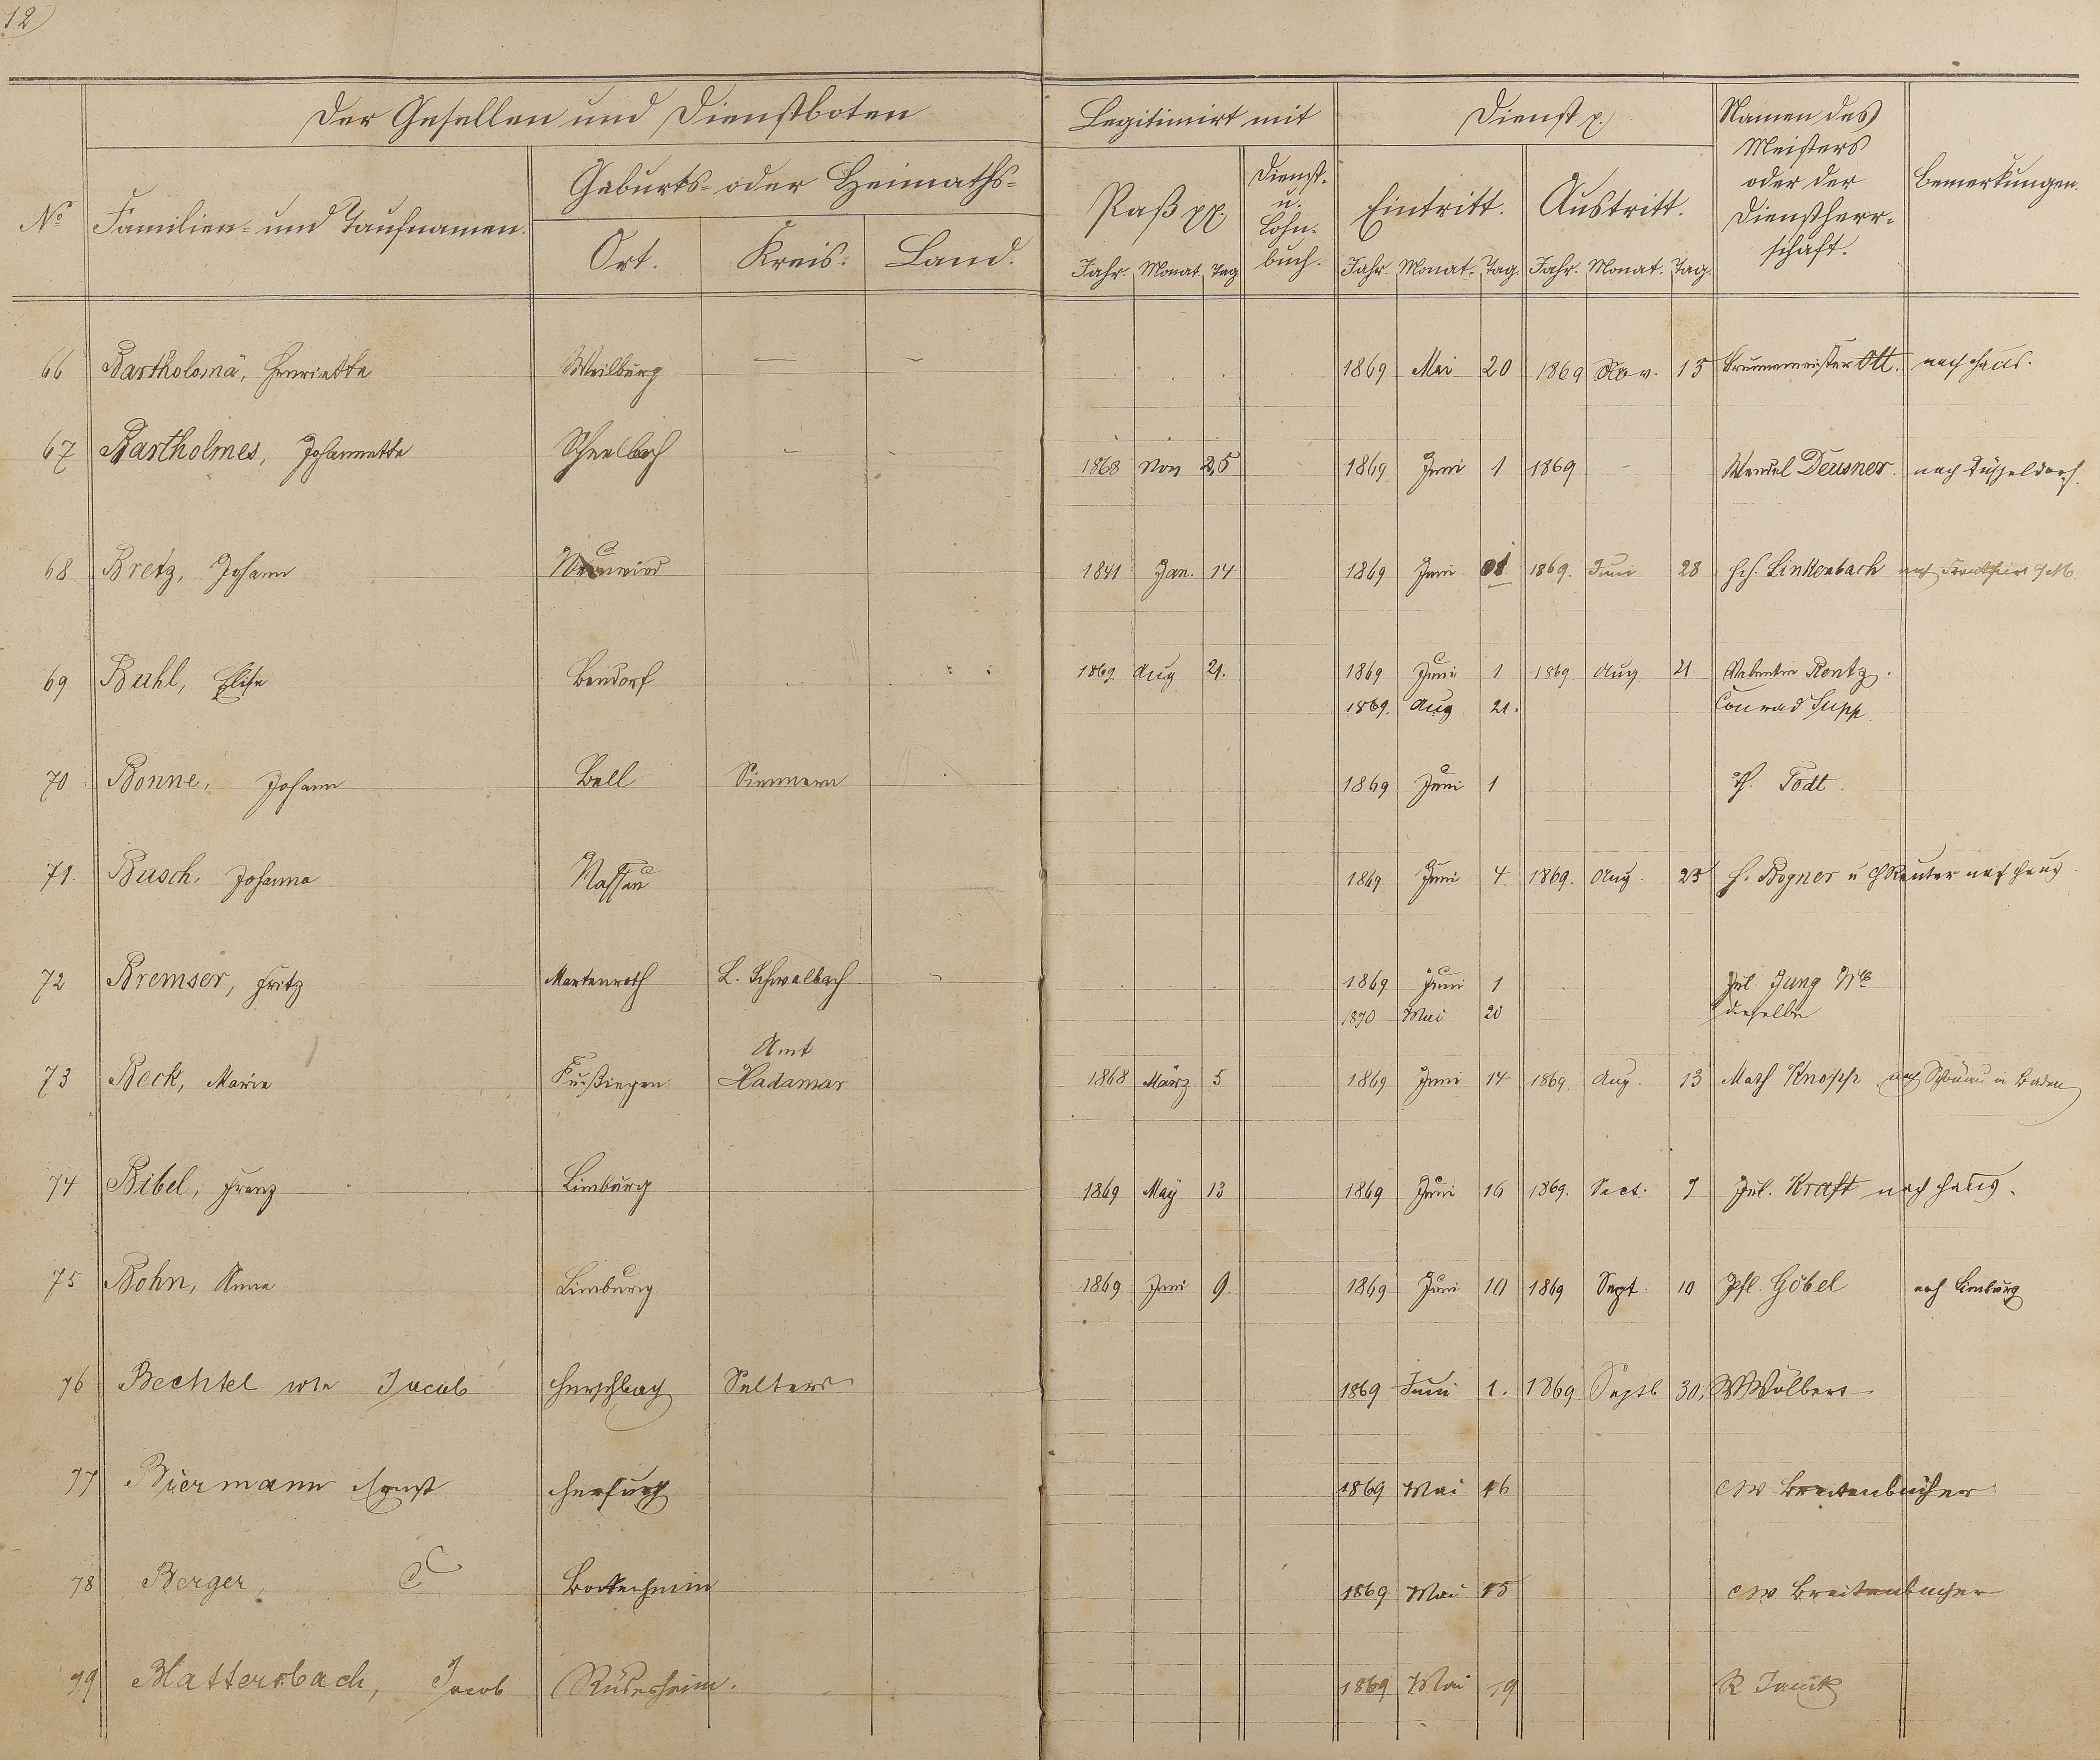 12
Der Gesellen und Dienstboten
Legitimirt mit
Dienst p.
Namen des Meisters oder der Dienstherr-schaft.
Bemerkungen.
No
Familien- und Taufnamen.
Geburts- oder Heimaths-
Ort. Kreis. Land.
Paß pp.
Dienst- u. Lohn-buch.
Eintritt. Austritt.
Jahr. Monat. Tag
Jahr. Monat. Tag. Jahr. Monat. Tag.
66 Bartholomä, Henriette Weilburg — – 1869 Mai 20 1869 Nov. 15 Brunnenmeister Ott. nach Haus.
67 Bartholmes, Johannette - - 1868 Nov 25 1869 Juni 1 1869 - Wendel Deusner. nach Düsseldorf.
68 Bretz, Johann Neuwied 1841 Jan. 14 1869 Juni 1869. Juni 28 Hch. Linkenbach nach Frankfurt a/M.
69 Buhl, Elise Bendorf 1869. Aug 21. 1869 Juni 1 1869. Aug. 21 Rentz.
1869. Aug 21. Conrad Supp
70 Bonne, Johann Bell Simmern 1869 Juni 1 Todt.
71. Busch, Johanna Nassau 1869 Juni 4. 1869. Aug. 25 H. Bogner u Reuter nach Haus
72 Bremser, Fritz Martenroth L. Schwalbach - 1869 Juni 1 Jul. Jung Wb
1870 Mai 20 dieselbe
73 Beck, Marie Fussingen Amt Hadamar 1868 März 5 1869 Juni 14 1869. Aug. 13 Math Knopp nach Schönau in Baden
74 Bibel, Franz Limburg 1869 May 13 1869 Juni 16 1869. Sept. 7 Jul. Kraft nach Haus.
75 Bohn, Anna Limburg 1869 Juni 9. 1869 Juni 10 1869 Sept. 10 Phl. Göbel nach Limburg
76 Bechtel Jacob Herschbach Selters 1869 Juni 1. 1869 Septb 30. W Wolbers
77 Biermann Ernst Herford 1869 Mai 16 CW Breitenbücher
78 Berger, C Bockenheim 1869 Mai 15 CW Breitenbücher
79 Blattersbach, Jacob Rüdesheim. 1869 Mai 19